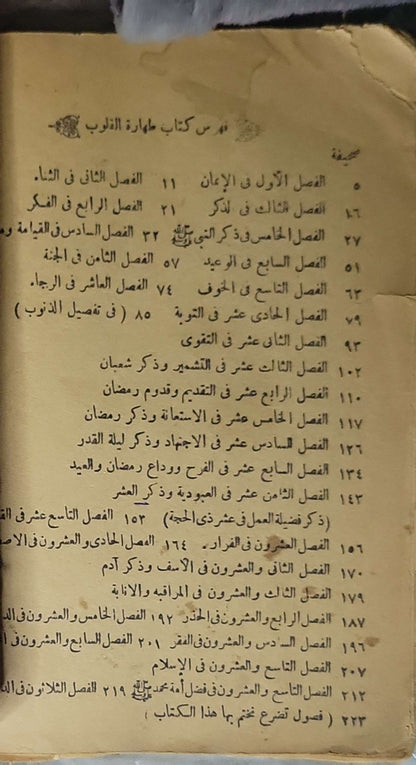 فهرس كتاب طهارة القلوب
صحيفة
٥ الفصل الأول فى الإيمان ١١ الفصل الثانى فى الثناء
١٦ الفصل الثالث فى الذكر ٢١ الفصل الرابع فى الفكر
٢٧ الفصل الخامس فى ذكر النبى ﷺ ٣٢ الفصل السادس فى القيامة
٥١ الفصل السابع فى الوعيد ٥٧ الفصل الثامن فى الجنة
٦٣ الفصل التاسع فى الخوف ٧٤ الفصل العاشر فى الرجاء
٧٩ الفصل الحادى عشر فى التوبة ٨٥ ( فى تفصيل الذنوب )
٩٣ الفصل الثانى عشر فى التقوى
١٠٢ الفصل الثالث عشر فى التشمير وذكر شعبان
١١٠ الفصل الرابع عشر فى التقديم وقدوم رمضان
١١٧ الفصل الخامس عشر فى الاستعانة وذكر رمضان
١٢٦ الفصل السادس عشر فى الاجتهاد وذكر ليلة القدر
١٣٤ الفصل السابع عشر فى الفرح ووداع رمضان والعيد
١٤٣ الفصل الثامن عشر فى العبودية وذكر العشر
(ذكر فضيلة العمل فى عشر ذى الحجة) ١٥٣ الفصل التاسع عشر فى
١٥٦ الفصل العشرون فى الفرار. ١٦٤ الفصل الحادى والعشرون فى
١٧٠ الفصل الثانى والعشرون فى الأسف وذكر آدم
١٧٩ الفصل الثالث والعشرون فى المراقبه والانابة
١٨٧ الفصل الرابع والعشرون فى الحذر ١٩٢ الفصل الخامس والعشرون فى
١٩٦ الفصل السادس والعشرون فى الفقر ٢٠١ الفصل السابع والعشرون فى
٢٠٧ الفصل التاسع والعشرون فى الإسلام
٢١٢ الفصل التاسع والعشرون فى فضل أمة محمد ﷺ ٢١٩ الفصل الثلاثون فى
٢٢٣ ( فصول تضرع نختم بها هذا الكتاب )